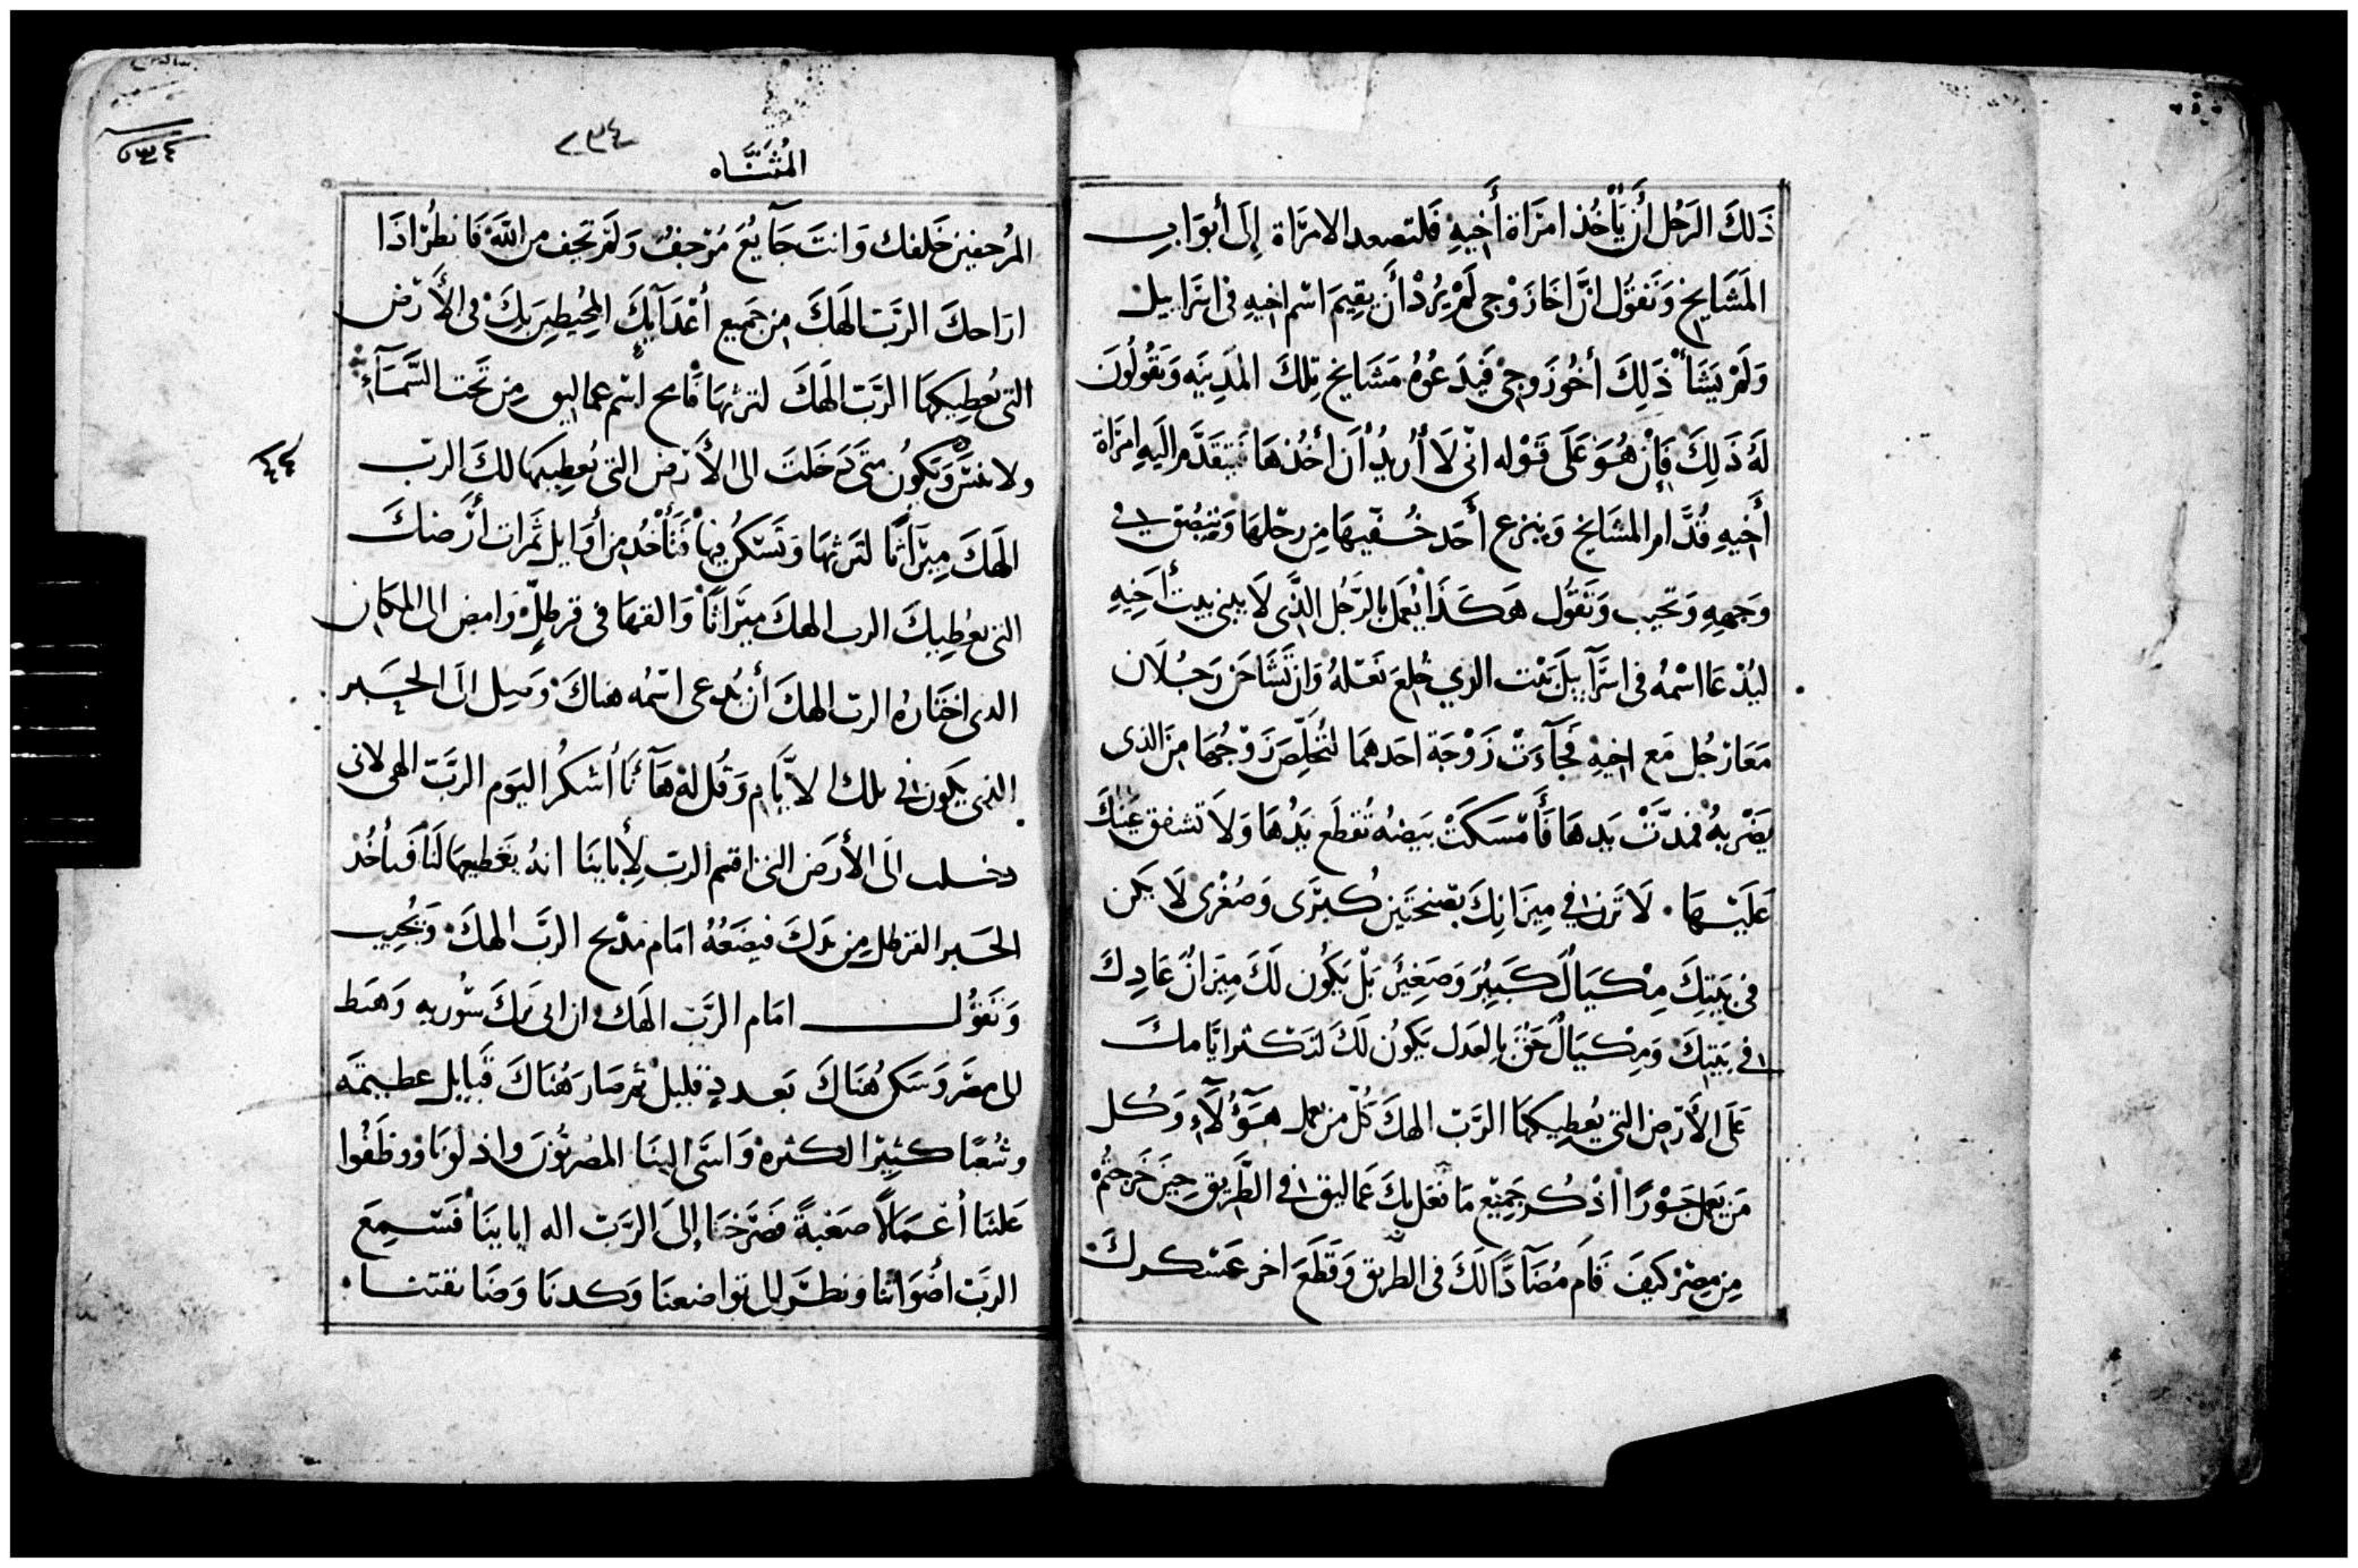 ذَلكَ الرَجُل أَن يَأْخُذ امرَاة أَخِيهِ فَلتصعد الامرَاة إِلَى أبوَاب
المَشَايخ وَتَقوُل انَّ اخَا زَوْجى لَمْ يُرْدْ أَن يقِيمَ اسْم اخِيهِ فى اسرَاييل
وَلَمْ يَشَأْ ذَلِكَ أخُو زَوجى فَيَدعُوُهُ مَشَايخ تِلكَ المَدِينَه وَيَقُولُونَ
لَهُ ذَلِكَ فَإِنْ هُوَ عَلَى قَوْله انّى لَا أُريُدُ أَن أخُذهَا تَتقَدَّم الَيهِ امرَاة
أَخِيهِ قُدَّام المشَايخ وَتنزع أَحَد خُفّيهَا مِن رجْلهَا وَتبصُق فى
وَجههِ وَتجيب وَتَقوُل هَكَذَا يُعمَل بالرَّجُل الذَّى لَا يبنى بيت أَخِيهِ
ليُدْعَا اسْمُه فى اسْرَآييلَ بَيْت الذي خُلِعَ نَعْلهُ وَان تَشَاحَن رَجُلَان
مَعَا رَجُل مَع اخِيهِ فَجَآءَتْ زَوْجَة احَدهمَا لتُخَلِّصَ زَوْجُهَا مِنَ الذى
يَضْربهُ فمَدَّتْ يَدهَا فَأَمْسَكَتْ بَيضهُ تُقطَع يَدُهَا وَلَا تشفق عَينكَ
عَلَيْهَا . لَا تَزن فى مِيزَانِكَ بصَنجتَين كُبْرَى وَصُغْرَى لَا يَكن
فى بَيتِكَ مِكيَالٌ كَبِيْرَ وَصَغِيْر بَلْ يَكُون لَكَ مِيزَانٌ عَادِل
فى بَيتِكَ وَمِكيَالٌ حَقّ بالعَدل يَكُونُ لَكَ لتَكثر ايَّامك
عَلَى الأَرْض التى يُعطِيكهَا الرَّبّ الهكَ كُلّ مَن يعمل هَؤُلَآءِ وَكُل
مَن يَعمل جَوْرًا اذْكُر جَمِيْع مَا فعَل بكَ عَماليق فى الطَّرِيق حِينَ خَرجتُمْ
مِن مِصْرَ كَيفَ قَامَ مُضَآدًّا لَكَ فى الطريق وَقَطَعَ اخر عَسْكرك
٢٣٤
المُثَنَّاه
خَلفك وَانتَ جَآيُعَ وَلَمْ تَخِف من اللَّهَ فَانظُرْ اذَا
ارَاحكَ الرَّبّ الَهكَ مِن جَميع أعْدَآيكَ المحِيُطين بكَ فى الأَرْض
التى يُعطِيكهَا الرَّبّ الَهكَ لترثهَا فَامح اسْم عماليق مِن تَحت السَّمَآءِ
ولا تنسَ وَيَكُون متَى دَخلتَ الى الأَرْض التى يُعطِيهَا لكَ الربّ
الَهكَ مِيرَاثًا لتَرثهَا وَتَسْكُن فيهَا فَتَأخُذ مِن أوَايل ثمَرات أرْضكَ
التى يعُطِيكَ الرب الهكَ مِيرَاثًا وَالقهَا فى قرطلٍّ وَامض الى المكان
الدى اختَارهُ الربّ الهكَ أن يُدعى اسْمُه هنَاكَ وَميل الَى الحبر
الذى يَكون فى تلك الأيَّام وَقُل لهُ هَآ أنَا أشكُر اليَوم الرَّبّ الهى لانى
دخلت الَى الأرَض التى اقسَم الربّ لِأبَاينَا انهُ يَعطيهَا لنَا فيأخُذ
الحَبر القرطل مِن يَدكَ فيضَعُهُ امَام مَذْبح الرَّبّ الهكَ وَتجُيب
وَتَقوُل امَام الرَّبّ الَهكَ ان ابى تركَ سُوريه وَهَبط
الى مصْر وَسَكَن هُنَاكَ بَعددٍ قليل ثم صَار هُنَاكَ قبَايل عَظيمَه
وشُعبًا كثيرًا الكثرهْ وَاسَى الينَا المصْريُونَ واذلونَا وَوَظَفُوا
عَلَينَا أعْمَالًا صَعْبَةً فَصَرَخنَا إِلَى الرَبّ اله ابَاينَا فَسَمِعَ
الرَبّ أصْوَاتنَا وَنظَر الى تواضعنَا وَكدنَا وَضَايقتنا